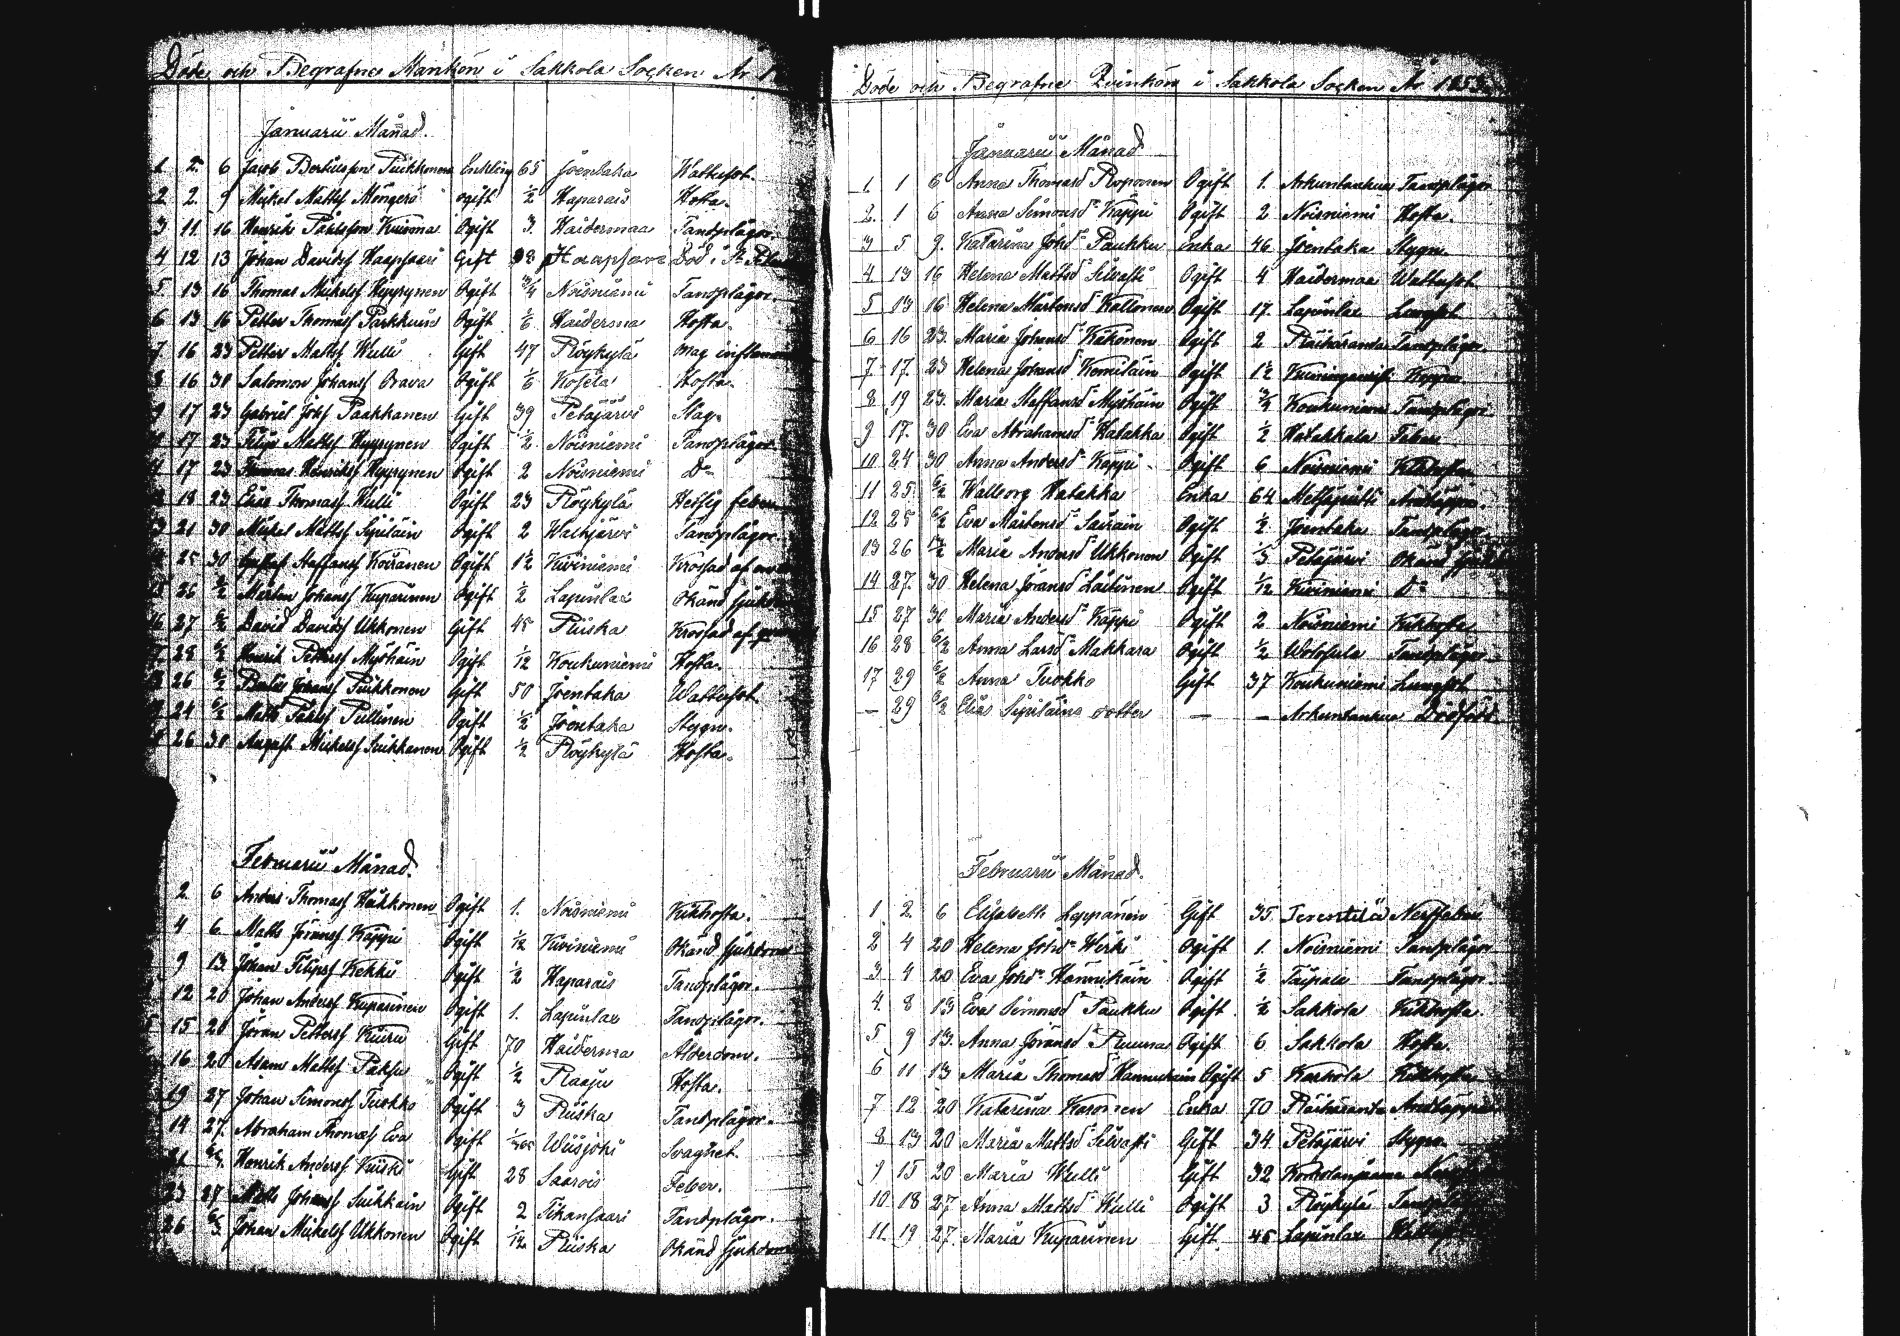 Döde och Begrafne Mankön i Sakkola Socken År
Januarii Månad.
1 2 6 Jacob Bertilsson Puikkonen Enkling 65 Joentaka Wattusot.
2 2 9 Mickel Matts Ogift 1/2 Haparais Hosta.
3 11 16 Henrik Påhlsson Kuisma Ogift 3 Haidermaa Tandplågor.
4 12 13 Johan Davidss Haapsaari Gift Död i St.
5 13 16 Thomas Mickelss Hyyrynen Ogift 3/4 Noisniemi Tandplågor.
6 13 16 Petter Thomass Parkkuin Ogift 1/6 Haiderma Hosta.
7 16 23 Petter Matts Wulli Gift 47 Röykylä mag
8 16 30 Salomon Johanss Orava Ogift 1/6 Kosela Hosta.
9 17 23 Gabriel Johs Paakkanen Gift 39 Petäjärvi Slag.
17 23 Filip Matts Hyyrynen Ogift 1/2 Noisniemi Tandplågor
17 23 Thomas Henrikss Hyyrynen Ogift 2 Noisniemi Do
18 23 Elias Thomass Wulli Ogift 23 Röykylä Hetsig feber
21 30 Mickel Matts Sipiläin Ogift 2 Tandplågor
25 30 Staffanss Koiranen Ogift 1 1/2 Kiviniemi Krossad af
15 26 6/2 Mårten Johanss Kuparinen Ogift 1/2 Lapinlax Okänd Sjukdom
16 27 6/2 David Davidss Ukkonen Gift 45 Riiska Krossad af
28 6/2 Henrik Petterss Myöhäin Ogift 1/12 Koukuniemi Hosta.
26 6/2 Johanss Puikkonen Gift 50 Joentaka Wattusot.
24 6/2 Matts Påhlss Pullinen Ogift 1/2 Joentaka Stygn.
26 30 August Mickelss Suikkanen Ogift 1/2 Röykylä Hosta.
Februarii Månad.
2 6 Anders Thomass Häkkönen Ogift 1. Noisniemi Kikhosta.
4 6 Matts Jöranss Käppi Ogift 1/12 Kiviniemi Okänd Sjukdom
9 13 Johan Filipss Kekki Ogift 1/2 Haparais Tandplågor.
12 20 Johan Anderss Kuparinen Ogift 1. Lapinlax Tandplågor.
15 20 Jöran Petterss Kiuru Gift 70 Haiderma Ålderdom.
16 20 Adam Matts Paksu Ogift 1/2 Raaju Hosta.
19 27 Johan Simonss Tuokko Ogift 3 Riiska Tandplågor.
14 27 Abraham Thomass Eva Ogift Wiisjoki Svaghet.
21 Henrik Anderss Kiiski Gift 28 Saarois Feber.
23 27 Matts Johanss Suikkain Ogift 2 Tikansaari Tandplågor.
26 6/3 Johan Mickelss Ukkonen Ogift 1/12 Riiska Okänd Sjukdom
Döde och Begrafne Qvinkön i Sakkola Socken År 1853
Januarii Månad
1. 1 6 Anna Thomasdr Roponen Ogift 1. Arkuntanhua Tandplågor
2. 1 6 Anna Simonsdr Käppi Ogift 2 Noisniemi Hosta.
3 5 9. Katarina Johdr Paukku Enka 46 Joentaka Stygn.
4 13 16 Helena Mattsdr Silvasti Ogift 4 Haidermaa Wattusot
5 13 16 Helena Mårtensdr Kallonen Ogift 17. Lapinlax Lungsot
6 16 23. Maria Johansdr Käkönen Ogift 2 Räihäranta Tandplågor.
7 17 23 Helena Johansdr Komilain Ogift 1 1/2 Koppor
8 19 23. Maria Staffansdr Myöhäin Ogift 3/4 Koukuniemi Tandplågor
9 17. 30 Eva Abrahamsdr Hatakka Ogift 1/2 Hatakkala Feber
10 24 30 Anna Andersdr Käppi Ogift 6 Noisniemi Kikhosta
11 25 6/2 Walborg Hatakka Enka 64 Metsäpirtti Andtäppa
12 25 6/2 Eva Mårtensdr Sairain Ogift 1/2 Joentaka Tandplågor
13 26 Maria Andersdr Ukkonen Ogift Petäjärvi Okänd
14 27. 30 Helena Jöransdr Laitinen Ogift 1/12 Kiviniemi Do
15 27 30 Maria Andersdr Käppi Ogift 2 Noisniemi Kikhosta
16 28 6/2 Anna Larsdr Makkara Ogift 1/2 Wolosula Tandplågor
17 29 6/2 Anna Tuokko Gift 37 Koukuniemi Lungsot.
— 29 6/2 Elias Sipiläins dotter — — Arkuntanhua Dödfödd
Februarii Månad.
1 2. 6 Elisabeth Leppänen Gift 35 Terentilä Nervfeber
2 4 20 Helena Johdr Wirki Ogift 1. Noisniemi Tandplågor
3 4 20 Eva Johdr Hannikain Ogift 1/2 Taipale Tandplågor.
4. 8 13 Eva Simonsdr Paukku Ogift 1/2 Sakkola Kikhosta.
5 9 13. Anna Jöransdr Ruuna Ogift 6 Sakkola Hosta.
6 11 13 Maria Thomasdr Hannukain Ogift 5 Karhola Kikhosta
7 12 20 Katarina Karonen Enka 70 Räihäranta Andtäppa
8 13 20 Maria Mattsdr Silvasti Gift 34 Petäjärvi Stygn.
9 15 20 Maria Wulli Gift 32
10 18 27 Anna Mattsdr Wulli Ogift 3 Röykylä Tandplågor
11. 19 27. Maria Kuparinen Gift. 45 Lapinlax